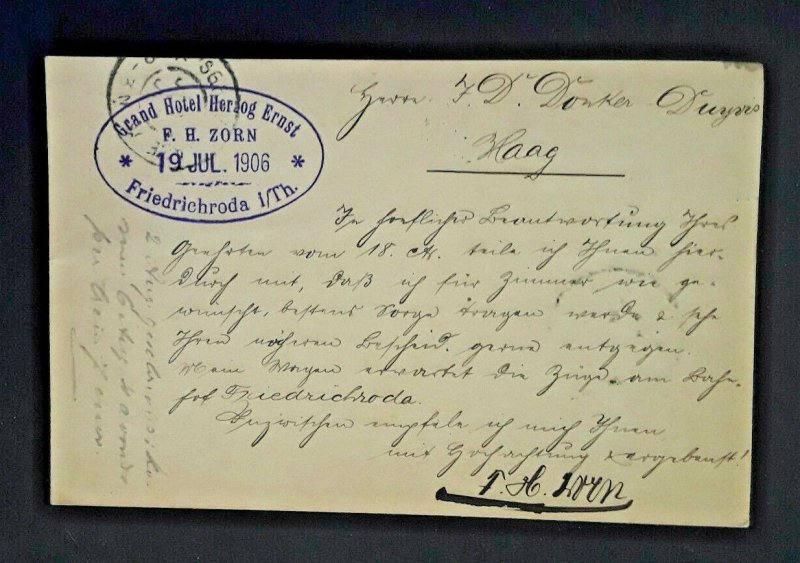 Grand Hotel Herzog Ernst
F. H. ZORN
* 19 JUL. 1906 *
Friedrichroda i/Th.
Herrn J. D. Donker-Duyvis
Haag
In hoeflicher Beantwortung Ihres
Geehrten vom 18. ct. teile ich Ihnen hier-
durch mit, daß ich für Zimmer wie ge-
wünscht, bestens Sorge tragen werde & sehe
Ihren näheren Bescheid gerne entgegen.
Mein Wagen erwartet die Züge am Bahn-
hof Friedrichroda.
Inzwischen empfele ich mich Ihnen
mit Hochachtung & ergebenst!
F. H. Zorn